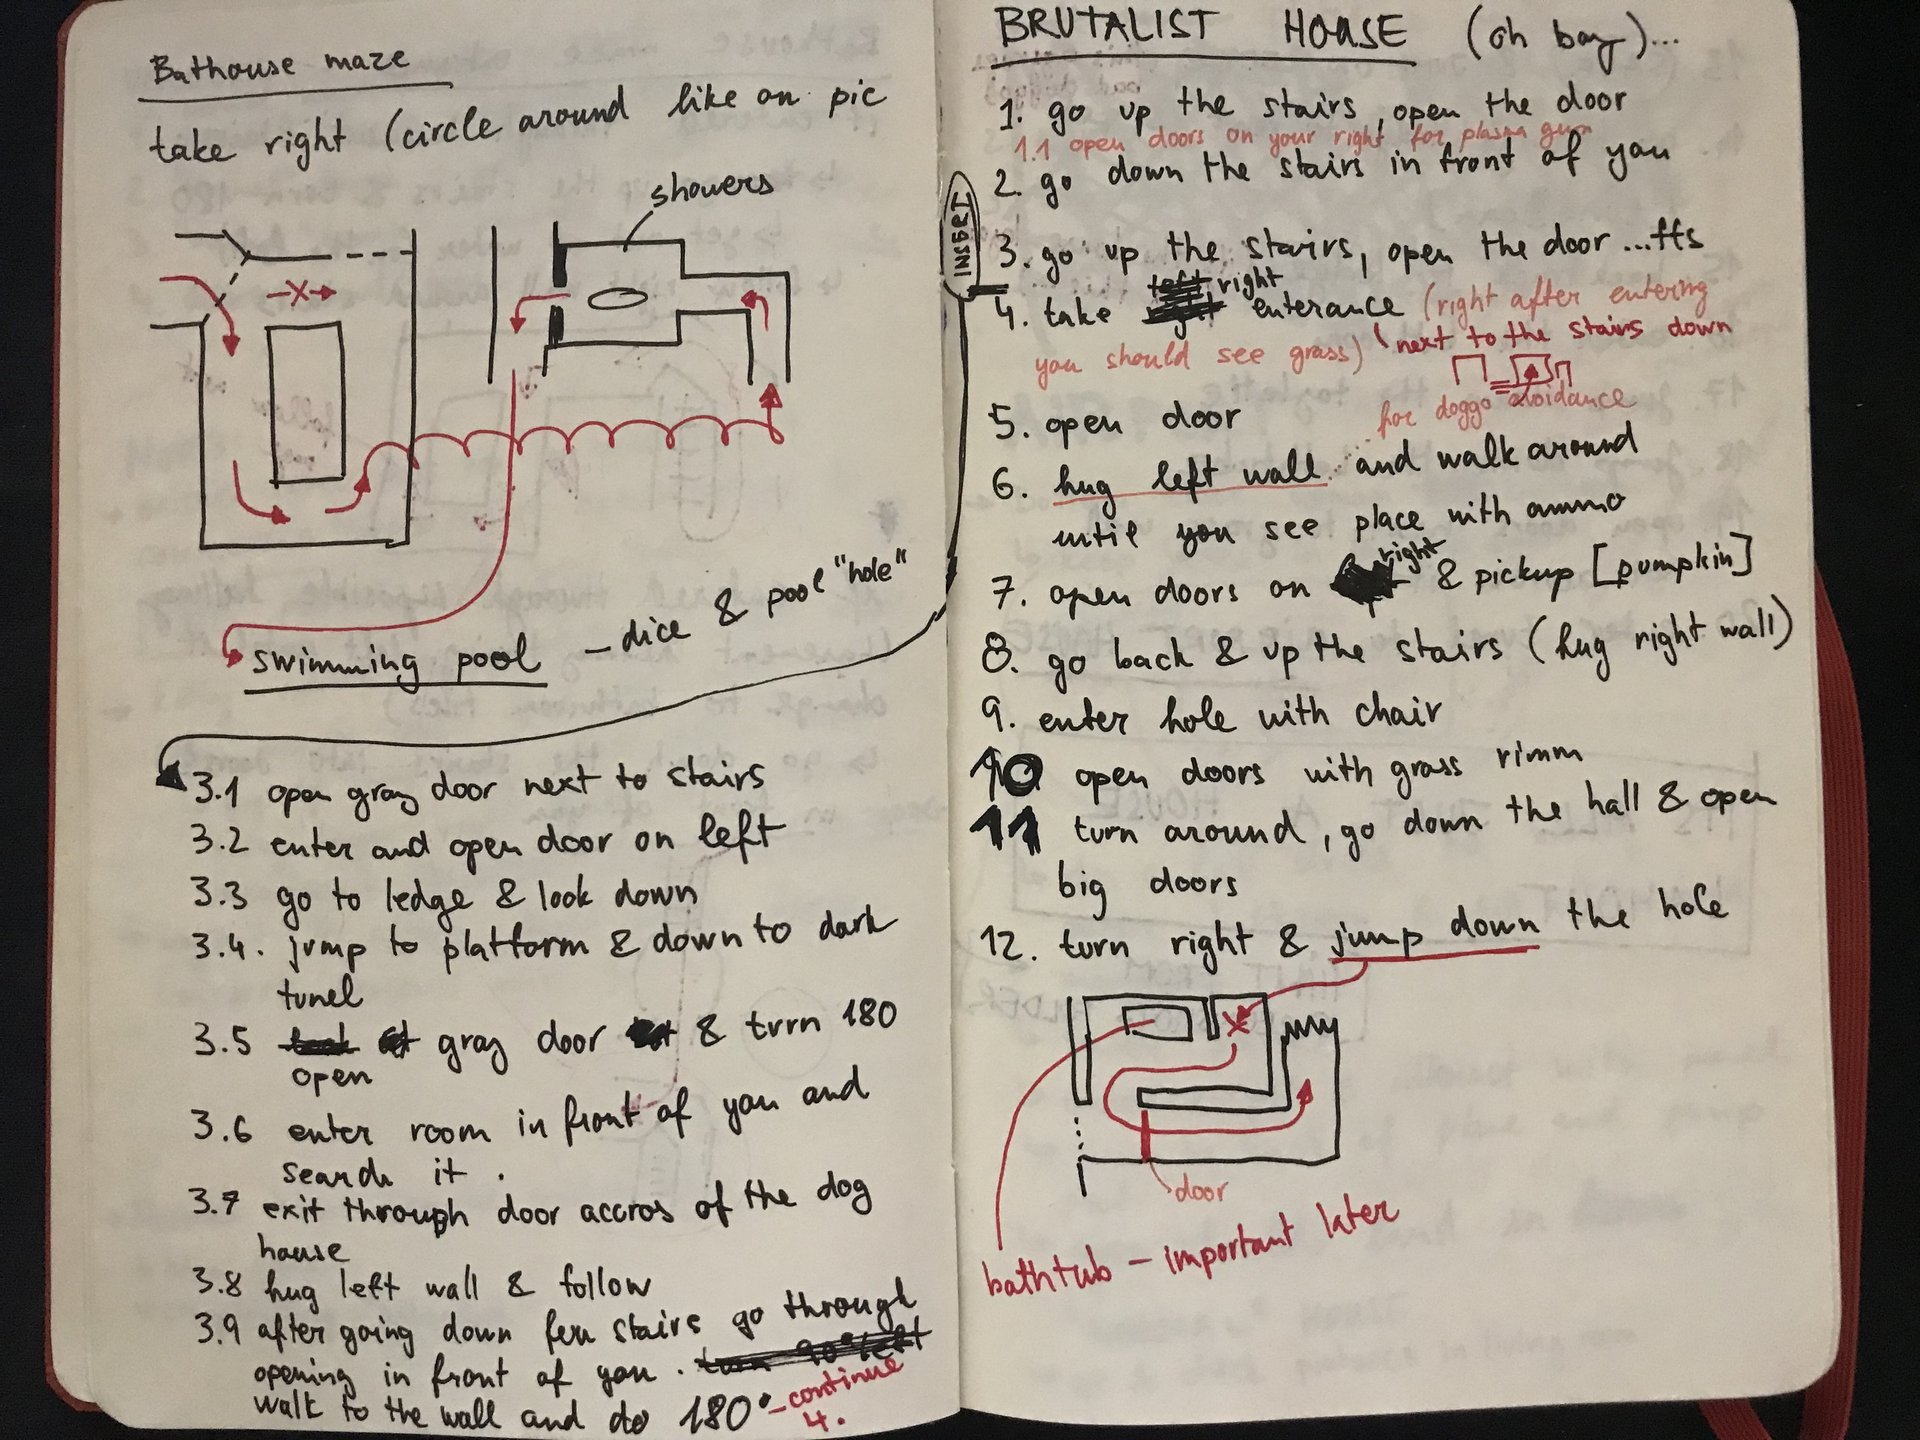 Bathouse maze
take right (circle around like on pic
showers
swimming pool - dice & pool "hole"
3.1 open gray door next to stairs
3.2 enter and open door on left
3.3 go to ledge & look down
3.4. jump to platform & down to dark
tunel
3.5 gray door & turn 180
open
3.6 enter room in front of you and
search it.
3.7 exit through door accros of the dog
house
3.8 hug left wall & follow
3.9 after going down few stairs go through
opening in front of you. turn 90° left
walk to the wall and do 180° - continue
4.
BRUTALIST HOUSE (oh boy)...
1. go up the stairs, open the door
1.1 open doors on your right for plasma gun
2. go down the stairs in front of you
INSERT
3. go up the stairs, open the door ...ffs
left right
4. take right enterance (right after entering
you should see grass) next to the stairs down
5. open door
for doggo avoidance
6. hug left wall and walk around
until you see place with ammo
7. open doors on right & pickup [pumpkin]
8. go back & up the stairs (hug right wall)
9. enter hole with chair
10 open doors with grass rimm
11 turn around, go down the hall & open
big doors
12. turn right & jump down the hole
door
bathtub - important later